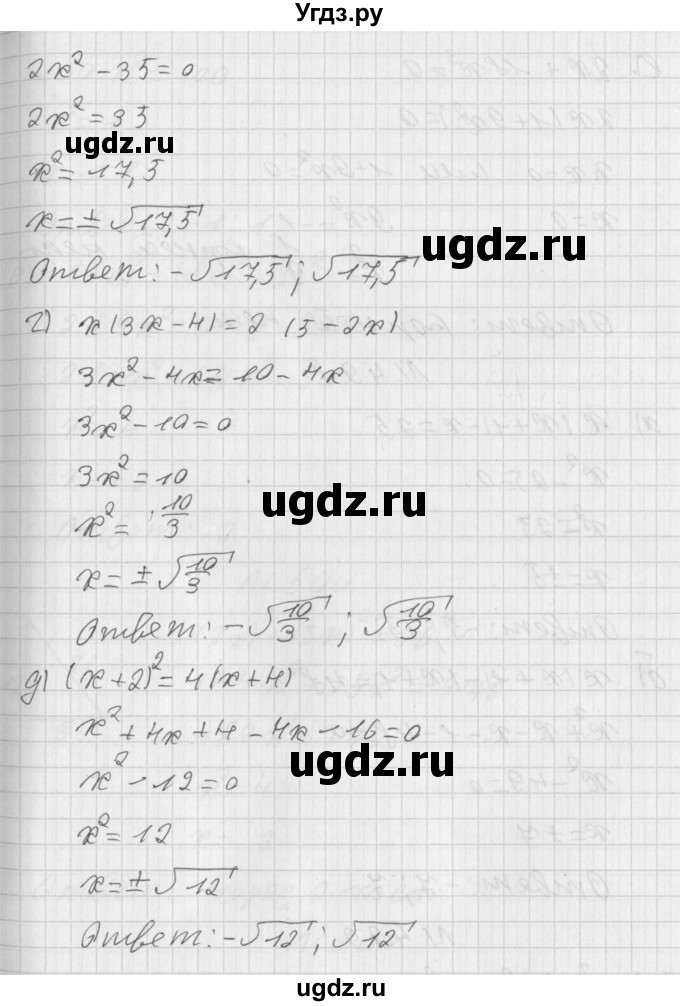 Угдз.ру
2x² - 35 = 0
2x² = 35
ugdz.ru
x² = 17,5
x = ± √17,5
ugdz.ru
Ответ: -√17,5 ; √17,5
г) x(3x - 4) = 2 (5 - 2x)
3x² - 4x = 10 - 4x
3x² - 10 = 0
3x² = 10
ugdz.ru
x² = 10/3
x = ± √10/3
Ответ: -√10/3 ; √10/3
ugdz.ru
д) (x + 2)² = 4(x + 4)
x² + 4x + 4 - 4x - 16 = 0
ugdz.ru
x² - 12 = 0
x² = 12
x = ± √12
Ответ: -√12 ; √12
ugdz.ru
ugdz.ru